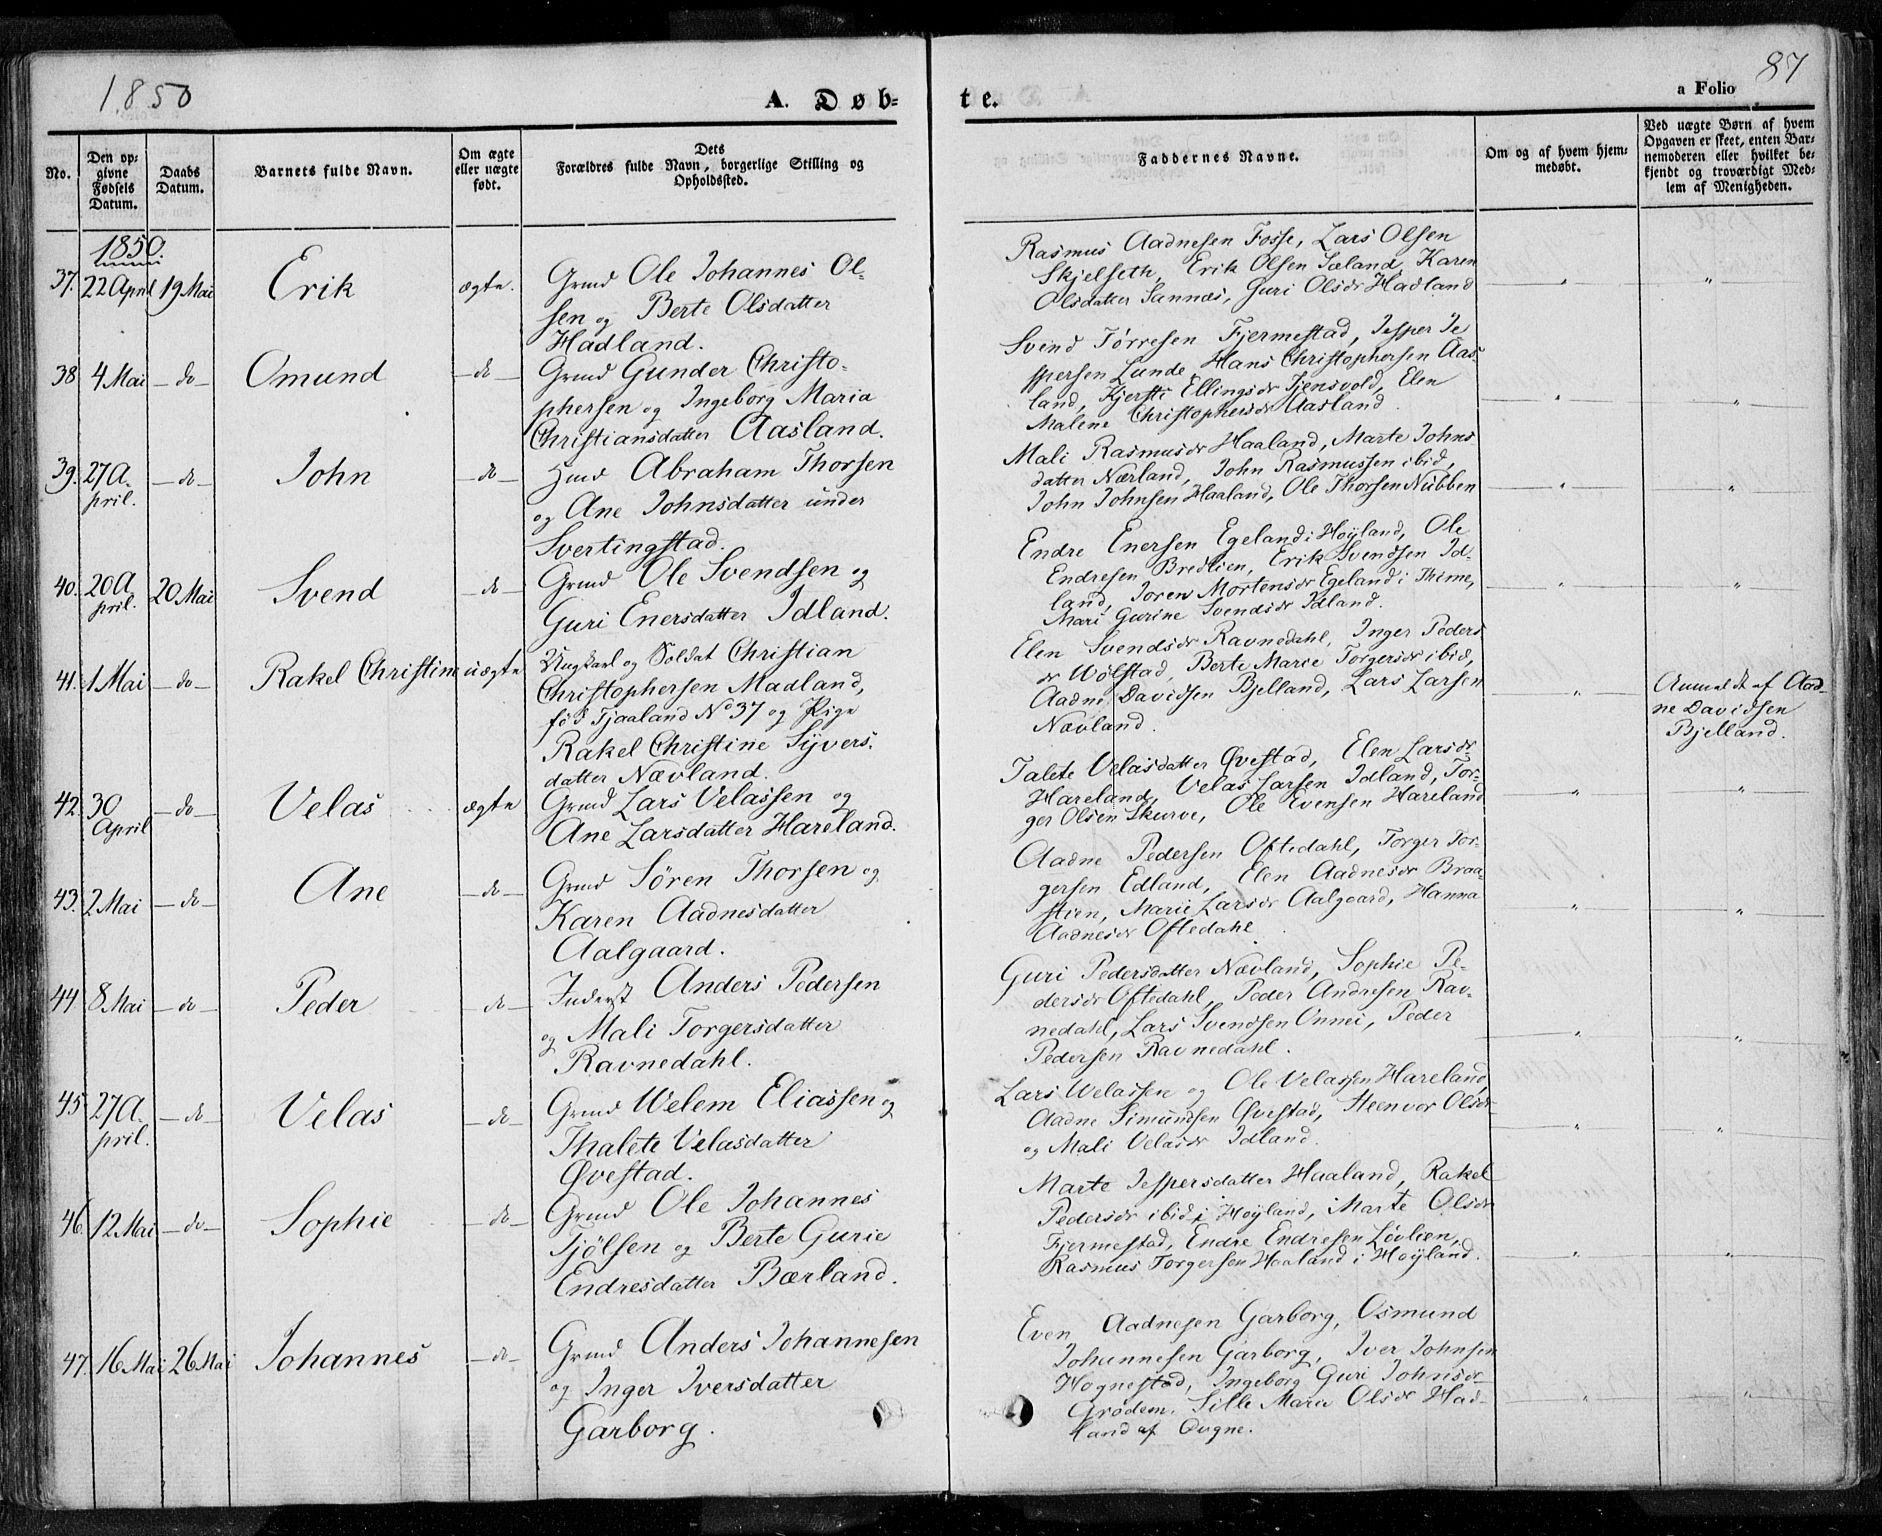 1850
A. Døb-
te.
87
a Folio
No.
Den op-
givne
Fødsels
Datum.
Daabs
Datum.
Barnets fulde Navn.
Om ægte
eller uægte
født.
Dets
Forældres fulde Navn, borgerlige Stilling og
Opholdssted.
Faddernes Navne.
Om og af hvem hjem-
medøbt.
Ved uægte Børn af hvem
Opgaven er skeet, enten Bar-
nemoderen eller hvilket be-
kjendt og troværdigt Med-
lem af Menigheden.
1850.
37. 22 April 19 Mai Erik ægte.
Grmd Ole Johannes Ol-
sen og Berte Olsdatter
Hadland.
Rasmus Aadnesen Fosse, Lars Olsen
Skjelseth, Erik Olsen Sæland, Karen
Olsdatter Sannæs, Guri Olsdr Hadland
38 4 Mai do Omund do
Grmd Gunder Christo-
phersen og Ingeborg Maria
Christiansdatter Aasland.
Svend Tørresen Fjermestad, Jesper Je
spersen Lunde, Hans Christophersen Aas-
land, Kjersti Ellingsdr Tjensvold, Elen
Malene Christophersdr Aasland.
39. 27 A-
pril. do John do
Hmd Abraham Thorsen
og Ane Johnsdatter under
Svertingstad.
Mali Rasmusdr Haaland, Marte Johns
datter Nærland, John Rasmussen ibid,
John Johnsen Haaland, Ole Thorsen Nubben
40. 20 A
pril. 20 Mai Svend do
Grmd Ole Svendsen og
Guri Enersdatter Idland.
Endre Enersen Egeland i Høyland, Ole
Endresen Bredlien, Erik Svendsen Id-
land, Joren Mortensdr Egeland i Thime,
Mari Gurine Svendsdr Idland.
41. 1 Mai do Rakel Christine uægte
Ungkarl og Soldat Christian
Christophersen Madland,
fød Tjaaland No 37 og Pige
Rakel Christine Syvers-
datter Nævland.
Elen Svendsdr Ravnedahl, Inger Peders
dr Wølstad, Berte Marie Torgersdr ibid,
Aadne Davidsen Bjelland, Lars Larsen
Nævland.
Anmeldt af Aad-
ne Davidsen
Bjelland.
42. 30
April do Velas ægte
Grmd Lars Velassen og
Ane Larsdatter Hareland.
Talete Velasdatter Øvestad, Elen Larsdr
Hareland, Velas Larsen Idland, Tor-
ger Olsen Skurve, Ole Evensen Hareland
43. 2 Mai do Ane do
Grmd Søren Thorsen og
Karen Aadnesdatter
Aalgaard.
Aadne Pedersen Oftedahl, Torger Tor-
gersen Edland, Elen Aadnesdr Braa-
stien, Marie Larsdr Aalgaard, Hanna
Aadnesdr Oftedahl.
44 8 Mai do Peder do
Inderst Anders Pedersen
og Mali Torgersdatter
Ravnedahl.
Guri Pedersdatter Nævland, Sophie Pe-
dersdr Oftedahl, Peder Andresen Rav-
nedahl, Lars Svendsen Omei, Peder
Pedersen Ravnedahl.
45 27 A-
pril. do Velas do
Grmd Welem Eliassen og
Thalete Velasdatter
Øvestad.
Lars Welassen og Ole Velassen Hareland,
Aadne Simundsen Øvestad, Steenvor Olsdr
og Mali Velasdr Idland.
46. 12 Mai do Sophie do
Grmd Ole Johannes
Tjølsen og Berte Gurie
Endresdatter Bærland.
Marte Jespersdatter Haaland, Rakel
Pedersdr ibid i Høyland, Marte Olsdr
Fjermestad, Endre Endresen Løvlien,
Rasmus Torgersen Haaland i Høyland.
47. 16 Mai 26 Mai Johannes do
Grmd Anders Johannesen
og Inger Iversdatter
Garborg.
Even Aadnesen Garborg, Osmund
Johannesen Garborg, Iver Johnsen
Hognestad, Ingeborg Guri Johnsdr
Grødem, Sille Marie Olsdr Had-
land af Ougne.